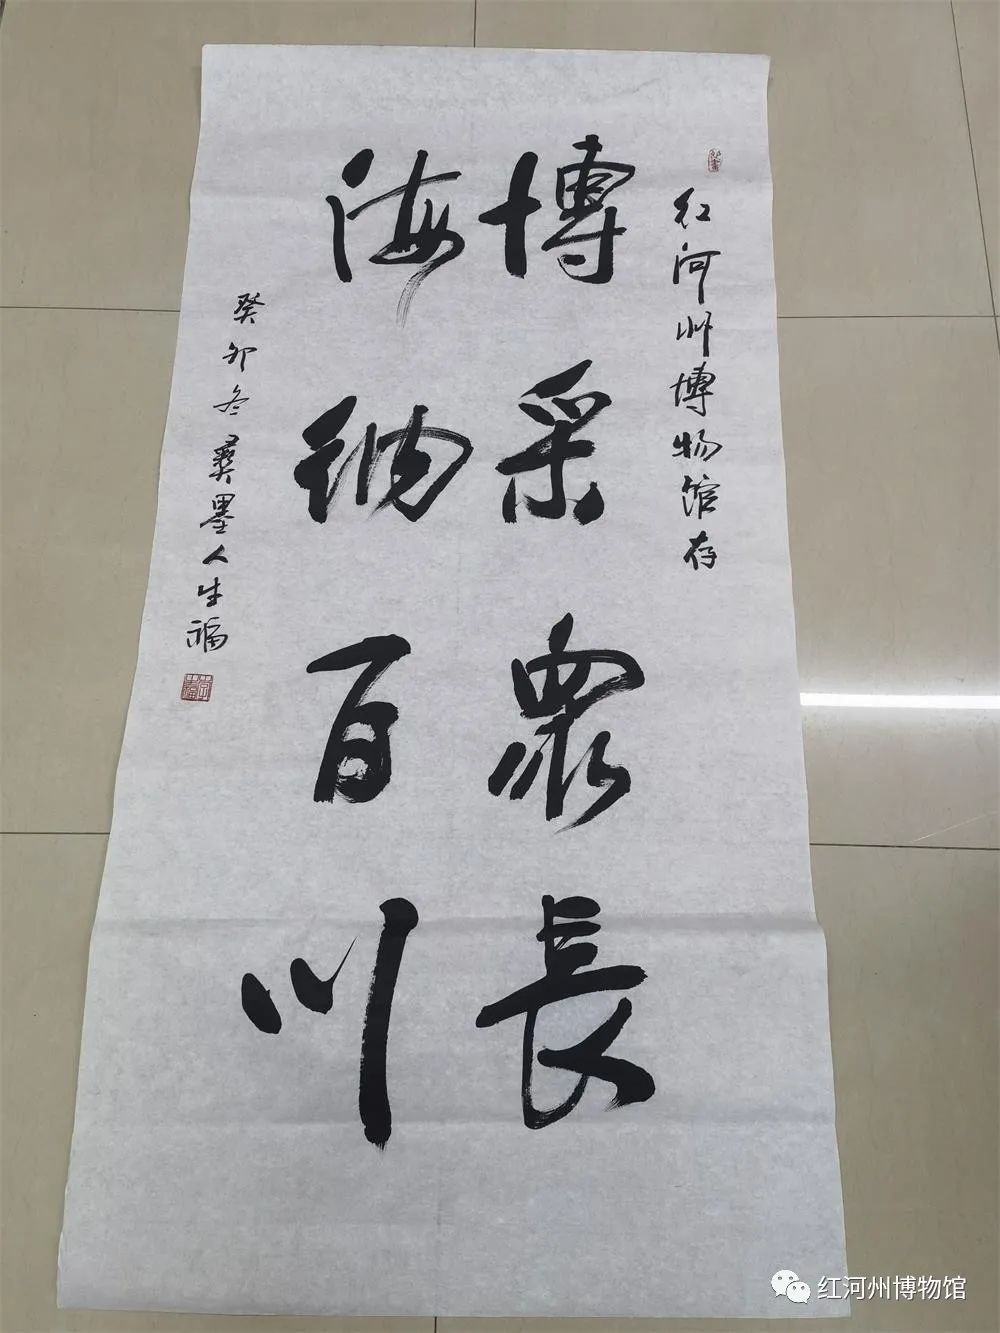 红河州博物馆存
博采眾長
海納百川
癸卯冬彝墨人生福
红河州博物馆